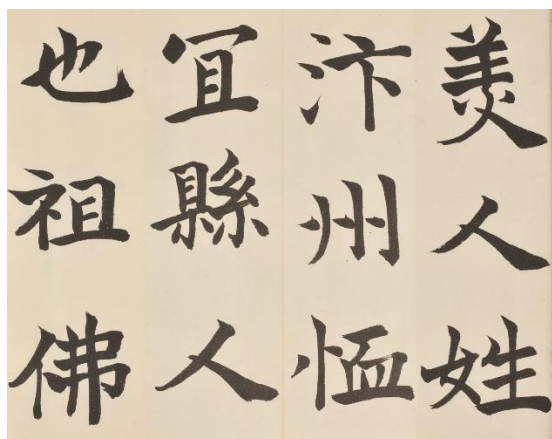 羙人姓
汴州恤
冝縣人
也祖佛